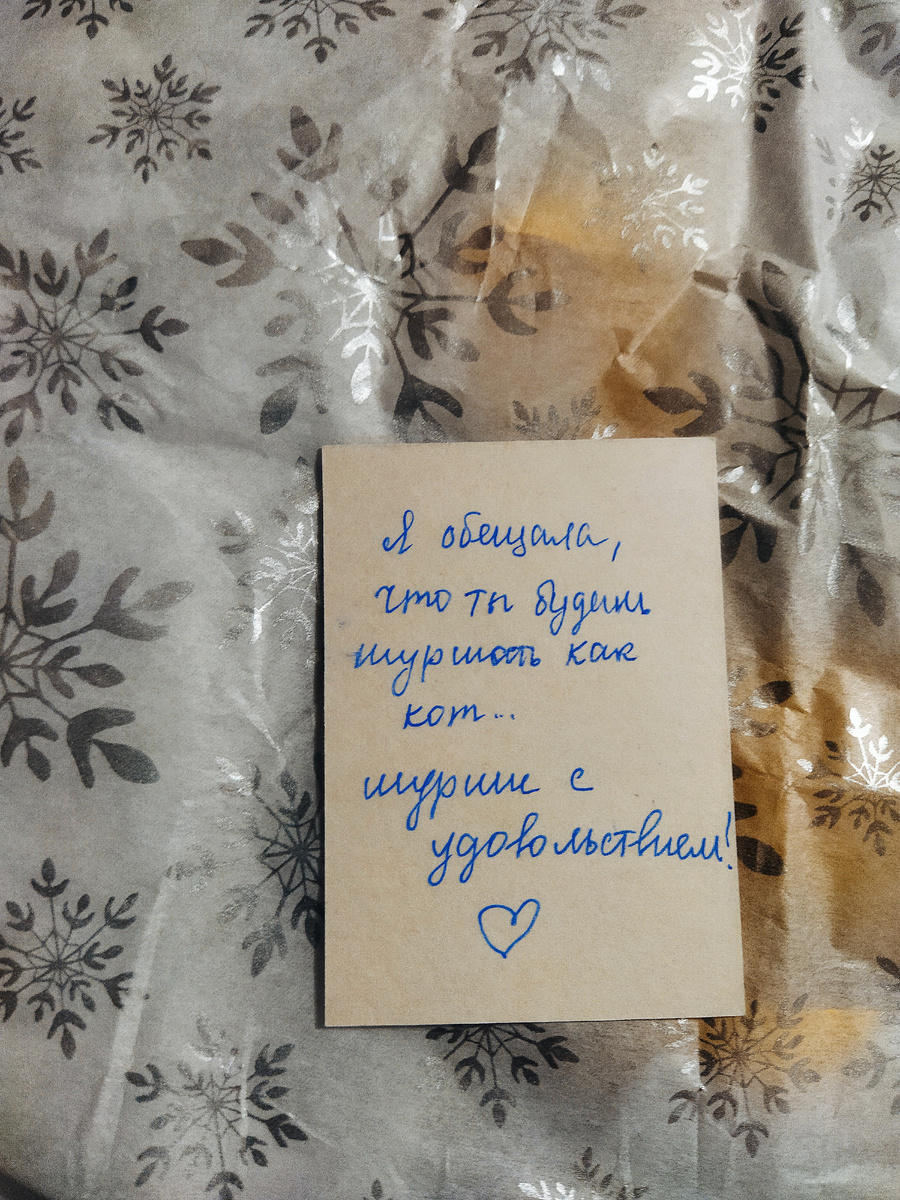 Я обещала,
что ты будешь
шуршать как
кот...
шурши с
удовольствием!